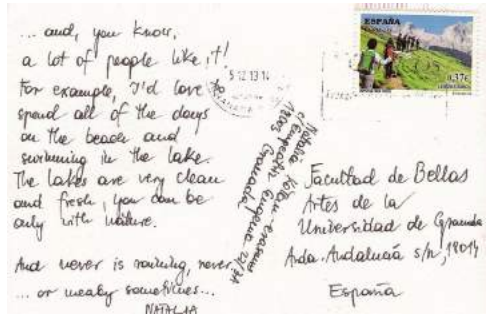 ... and, you know,
a lot of people like it!
For example, I'd love to
spend all of the days
on the beach and
swimming in the lake.
The lakes are very clean
and fresh, you can be
only with nature.
And never is raining, never
... or meaby sometimes...
NATALIA
5 12 13 14
Natalia
Emperatriz Eugenia
Granada
ESPAÑA
0,37€
Facultad de Bellas
Artes de la
Universidad de Granada
Avda. Andalucía s/n, 18014
España